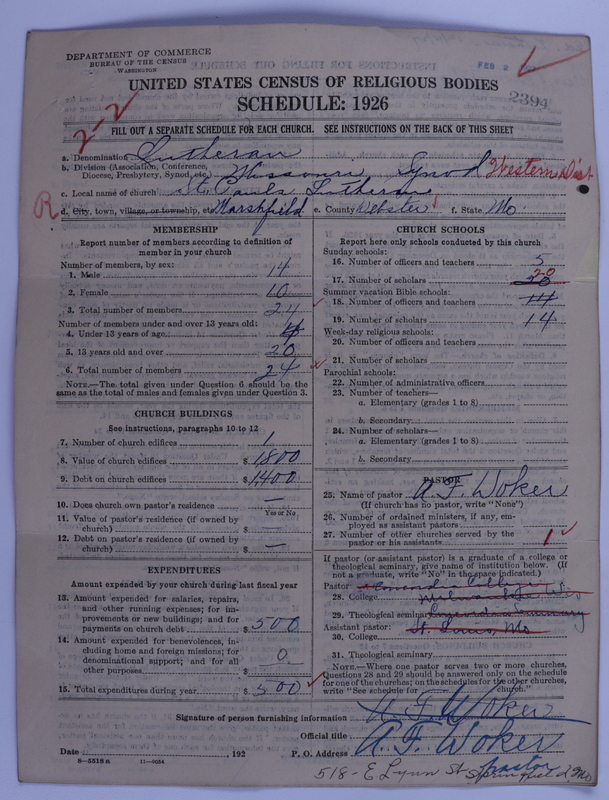 DEPARTMENT OF COMMERCE
BUREAU OF THE CENSUS
WASHINGTON
FEB 2
UNITED STATES CENSUS OF RELIGIOUS BODIES
SCHEDULE: 1926
2394
2-2
FILL OUT A SEPARATE SCHEDULE FOR EACH CHURCH. SEE INSTRUCTIONS ON THE BACK OF THIS SHEET
a. Denomination Lutheran
b. Division (Association, Conference, Diocese, Presbytery, Synod, etc.) Missouri Synod Western Dist
c. Local name of church St. Pauls Lutheran
R
d. City, town, village, or township, etc. Marshfield e. County Webster f. State Mo
MEMBERSHIP
Report number of members according to definition of
member in your church
Number of members, by sex:
1. Male 14
2. Female 10
3. Total number of members 24
Number of members under and over 13 years old:
4. Under 13 years of age 4
5. 13 years old and over 20
6. Total number of members 24
NOTE.—The total given under Question 6 should be the
same as the total of males and females given under Question 3.
CHURCH BUILDINGS
See instructions, paragraphs 10 to 12
7. Number of church edifices 1
8. Value of church edifices $ 1800
9. Debt on church edifices $ 1400
10. Does church own pastor's residence —
Yes or No
11. Value of pastor's residence (if owned by
church) $
12. Debt on pastor's residence (if owned by
church) $ —
EXPENDITURES
Amount expended by your church during last fiscal year
13. Amount expended for salaries, repairs,
and other running expenses; for im-
provements or new buildings; and for
payments on church debt $ 500
14. Amount expended for benevolences, in-
cluding home and foreign missions; for
denominational support; and for all
other purposes $ 0
15. Total expenditures during year $ 500
CHURCH SCHOOLS
Report here only schools conducted by this church
Sunday schools:
16. Number of officers and teachers 5
17. Number of scholars 20
Summer vacation Bible schools:
18. Number of officers and teachers 14
19. Number of scholars 14
Week-day religious schools:
20. Number of officers and teachers
21. Number of scholars
Parochial schools:
22. Number of administrative officers
23. Number of teachers—
a. Elementary (grades 1 to 8)
b. Secondary
24. Number of scholars—
a. Elementary (grades 1 to 8)
b. Secondary
PASTOR
25. Name of pastor A F Woker
(If church has no pastor, write "None")
26. Number of ordained ministers, if any, em-
ployed as assistant pastors
27. Number of other churches served by the
pastor or his assistants 1
If pastor (or assistant pastor) is a graduate of a college or
theological seminary, give name of institution below. (If
not a graduate, write "No" in the space indicated.)
Pastor: Concordia College
28. College Milwaukee, Wis
29. Theological seminary Concordia Seminary
Assistant pastor: St. Louis, Mo
30. College
31. Theological seminary
NOTE.—Where one pastor serves two or more churches,
Questions 28 and 29 should be answered only on the schedule
for one of the churches; on the schedules for the other churches,
write "See schedule for church."
Signature of person furnishing information A F Woker
Official title A. F. Woker
Date 192 P. O. Address pastor
8—5518a 11—9354
518 - E Lynn St Springfield Mo